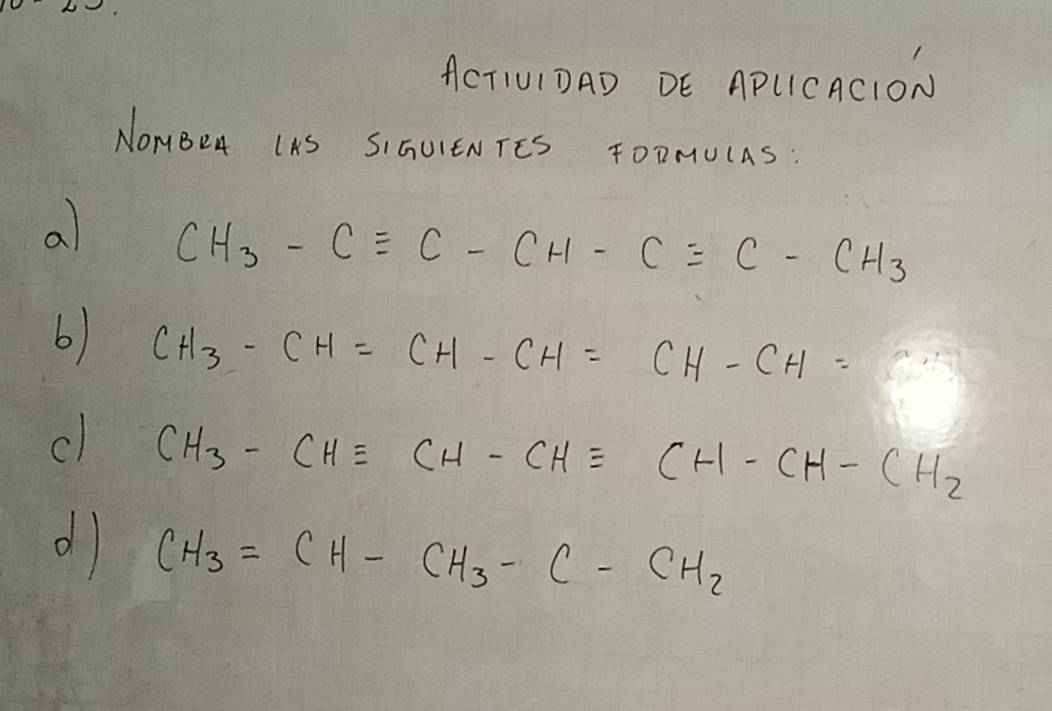 ACTIVIDAD DE APLICACIÓN
NOMBRA LAS SIGUIENTES FORMULAS:
a) CH3 - C ≡ C - CH - C ≡ C - CH3
b) CH3 - CH = CH - CH = CH - CH =
c) CH3 - CH ≡ CH - CH ≡ CH - CH - CH2
d) CH3 = CH - CH3 - C - CH2